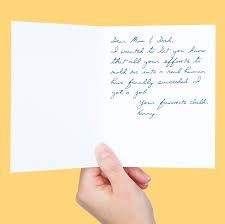 Dear Mom & Dad,
I wanted to let you know
that all your efforts to
mold me into a real human
have finally succeeded. I
got a job.
Your favorite child,